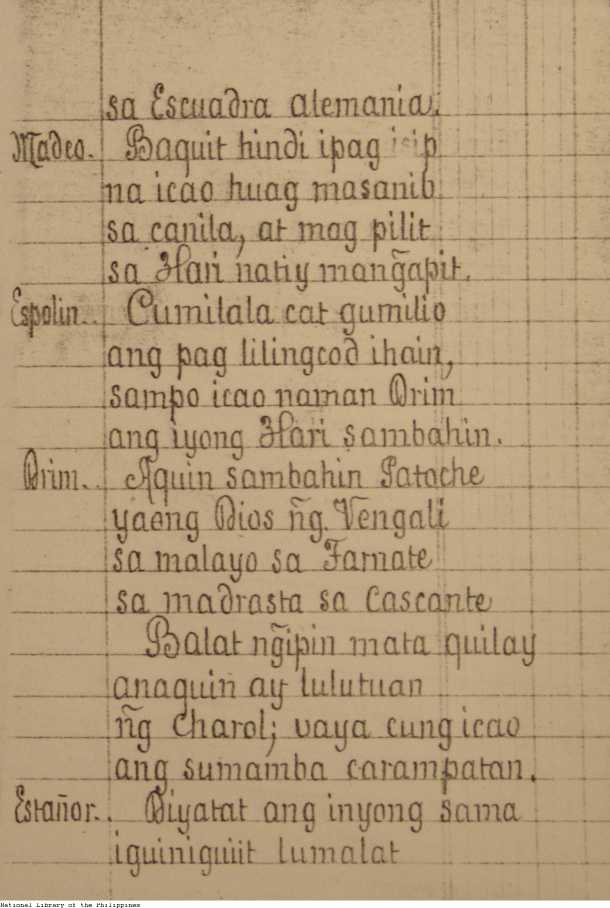 sa Escuadra alemania.
Madeo. Baquit hindi ipag isip
na icao huag masanib
sa canila, at mag pilit
sa Hari natiy mang̃apit.
Espolin. Cumilala cat gumilio
ang pag lilingcod ihain,
sampo icao naman Orim
ang iyong Hari sambahin.
Orim. Aquin sambahin Patache
yaong Dios ñg Vengali
sa malayo sa Tarnate
sa madrasta sa Cascante
Balat ng̃ipin mata quilay
anaquin ay lulutuan
ñg Charol; vaya cung icao
ang sumamba carampatan.
Estañor. Diyatat ang inyong sama
iguiniguiit lumalat
National Library of the Philippines